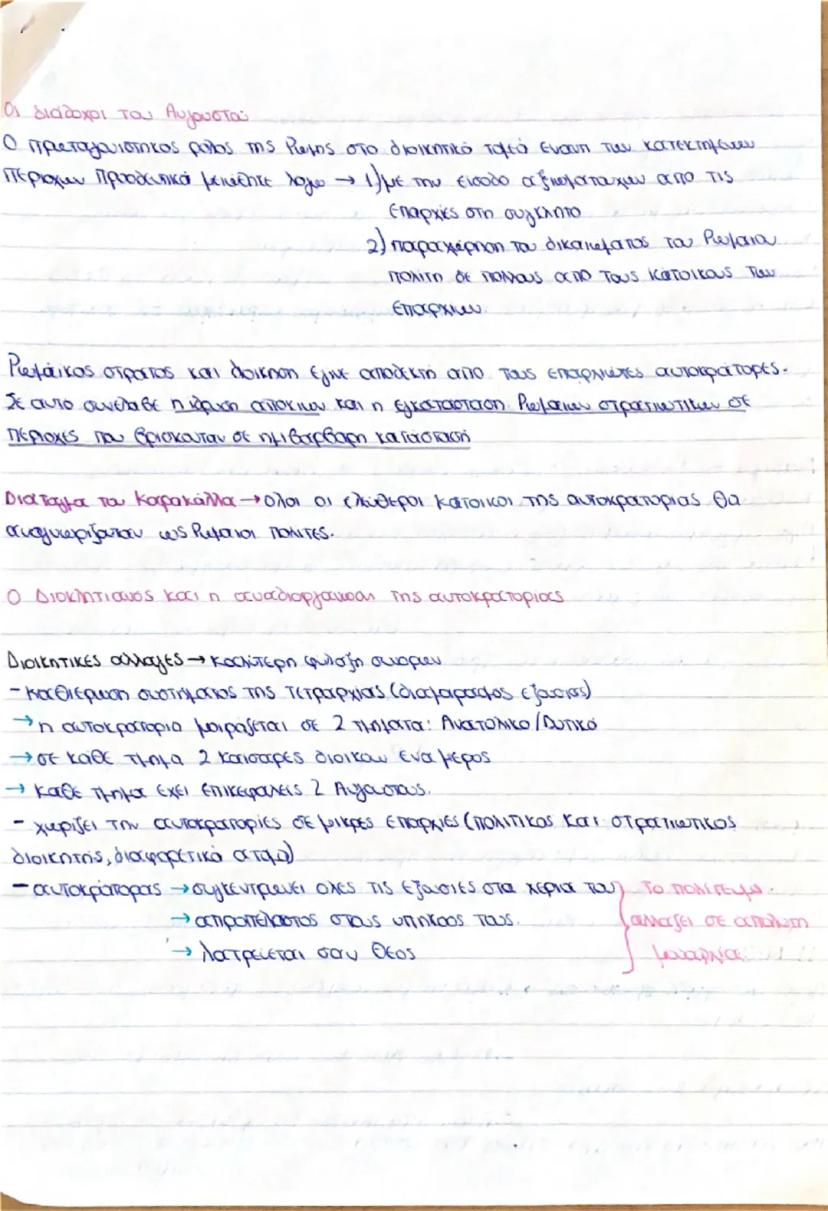 Οι διάδοχοι του Αυγούστου
Ο πρωταγωνιστικός ρόλος της Ρώμης στο διοικητικό τομέα έναντι των κατεκτημένων
περιοχών προοδευτικά μειώθηκε λόγω → 1) με την είσοδο αξιωματούχων από τις
επαρχίες στη σύγκλητο
2) παραχώρηση του δικαιώματος του Ρωμαίου
πολίτη σε πολλούς από τους κατοίκους των
επαρχιών
Ρωμαϊκός στρατός και διοίκηση έγινε αποδεκτή από τους επαρχιώτες αυτοκράτορες.
Σε αυτό συνέλαβε η ίδρυση αποικιών και η εγκατάσταση Ρωμαίων στρατιωτικών σε
περιοχές που βρίσκονταν σε ημιβάρβαρη κατάσταση
Διάταγμα του Καρακάλλα → όλοι οι ελεύθεροι κάτοικοι της αυτοκρατορίας θα
αναγνωρίζονταν ως Ρωμαίοι πολίτες.
Ο Διοκλητιανός και η αναδιοργάνωση της αυτοκρατορίας
Διοικητικές αλλαγές → καλύτερη φύλαξη συνόρων
- καθιέρωση συστήματος της τετραρχίας (διαμοιρασμός εξουσίας)
→ η αυτοκρατορία μοιράζεται σε 2 τμήματα: Ανατολικό/Δυτικό
→ σε κάθε τμήμα 2 καίσαρες διοικούν ένα μέρος
→ κάθε τμήμα έχει επικεφαλείς 2 Αυγούστους.
- χωρίζει την αυτοκρατορίες σε μικρές επαρχίες (πολιτικός και στρατιωτικός
διοικητής, διαφορετικά άτομα)
- αυτοκράτορας → συγκεντρώνει όλες τις εξουσίες στα χέρια του } Το πολίτευμα
→ απροπέλαστος στους υπηκόος τους. αλλάζει σε απόλυτη
→ λατρεύεται σαν Θεός μοναρχία